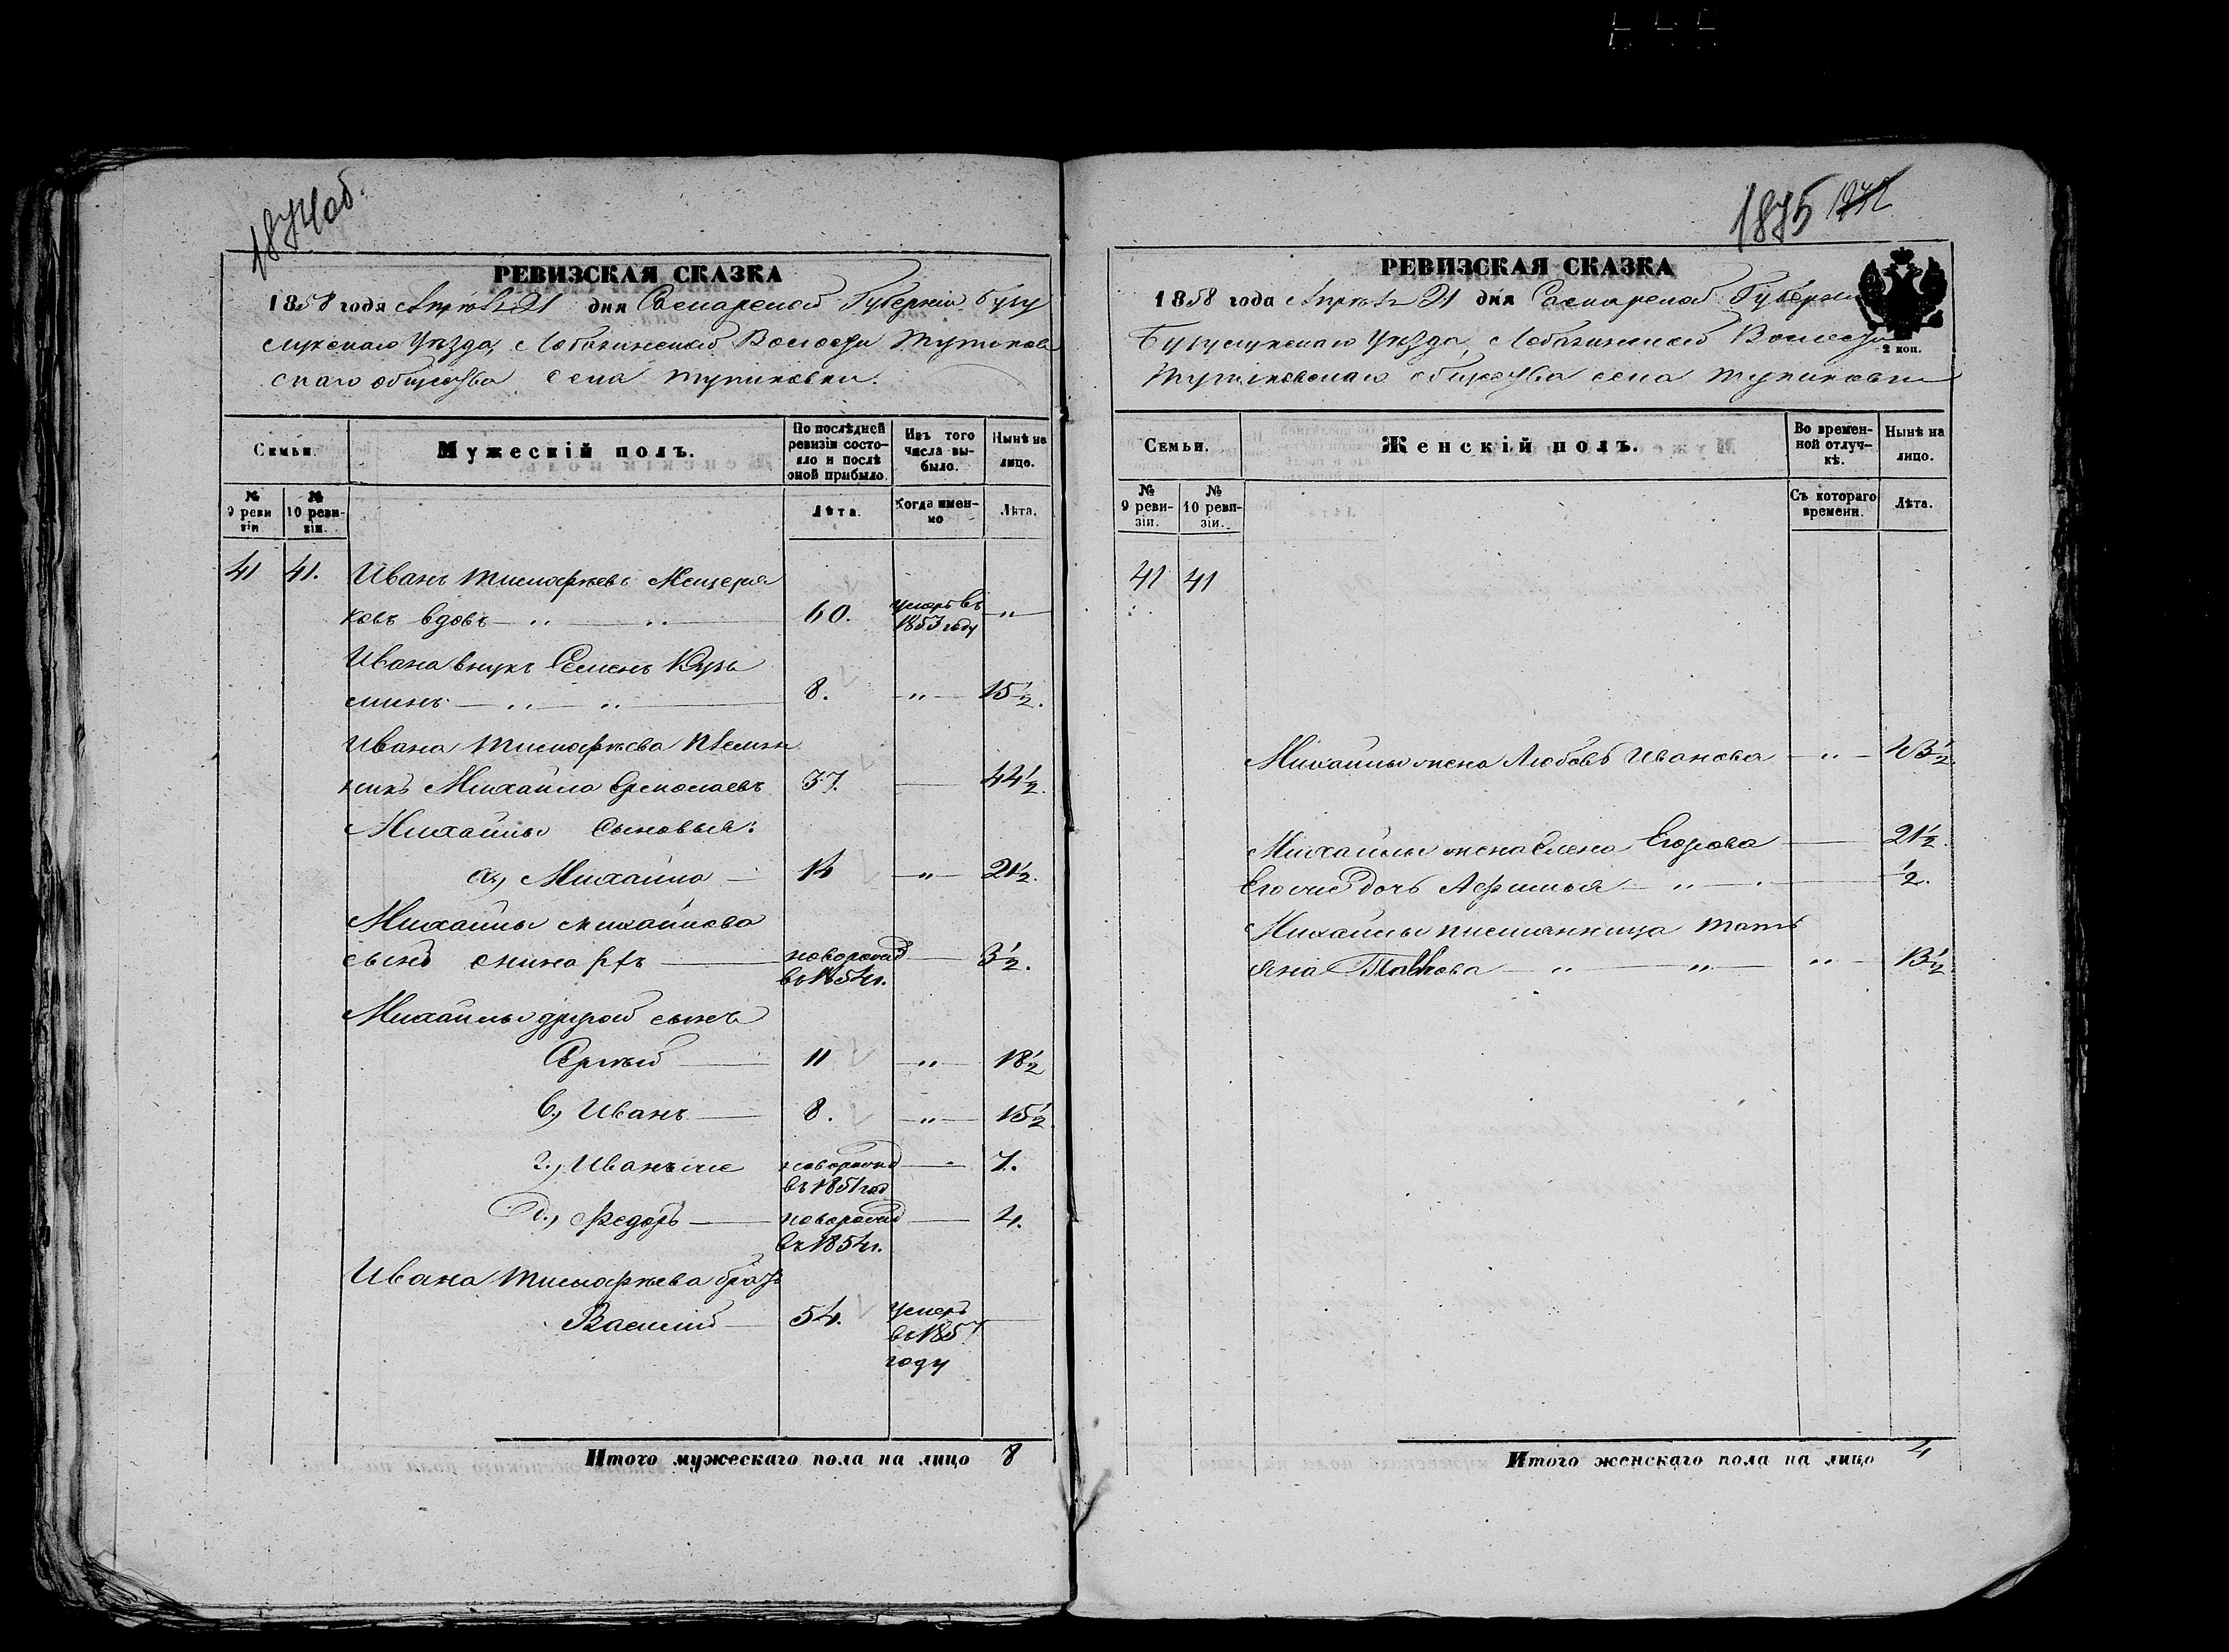 1874об.
РЕВИЗСКАЯ СКАЗКА
1858 года Апреля 21 дня Самарской Губерніи Бугу
лусмскаго Уезда, Лобазинской Волости Тупиков
скаго общества села Тупиковки.
Семьи.
Мужескій полъ.
По послѣдней ревизіи состо-
яло и послѣ оной прибыло.
Изъ того числа вы-
было.
Нынѣ на лицо.
№ 9 реви
зіи
№ 10 реви-
зіи.
Лѣта.
Когда имен-
но
Лѣта.
41 41. Иванъ Тимофеевъ Мещеря
ковъ вдовъ — „ „ 60. умеръ въ 1853 году „
Ивана внукъ Семенъ Кузь
минъ — „ „ 8. „ 15½.
Ивана Тимофеева племян
никъ Михайло Ермолаевъ 37. — 44½.
Михайлы Сыновья:
а., Михайло — 14 „ 21½.
Михайлы Михайлова
сынъ — новорожд въ 1854 г. — 3½.
Михайлы другой сынъ
Сергѣй — 11 „ 18½
в., Иванъ — 8. „ 15½
г., Иванъ же новорожд въ 1851 год — 7.
д., Федоръ — новорожд въ 1854 г. — 4.
Ивана Тимофеева братъ
Василій — 54. умеръ въ 1857 году —
Итого мужескаго пола на лицо 8
1875
РЕВИЗСКАЯ СКАЗКА
1858 года Апреля 21 дня Самарской Губерніи
Бугуслукскаго Уезда, Лобазинской Волости
2 коп.
Тупиковскаго общества села Тупиковки
Семьи.
Женскій полъ.
Во времен-
ной отлуч-
кѣ.
Нынѣ на лицо.
№ 9 реви-
зіи.
№ 10 реви-
зіи.
Съ котораго времени.
Лѣта.
41 41
Михайлы жена Любовь Иванова — „ — 43½.
Михайлы жена Елена Егорова — 21½.
Его же дочь Афимья — „ — ½.
Михайлы племянница Тать
яна — „ — „ — „ — 13½
Итого женскаго пола на лицо 4